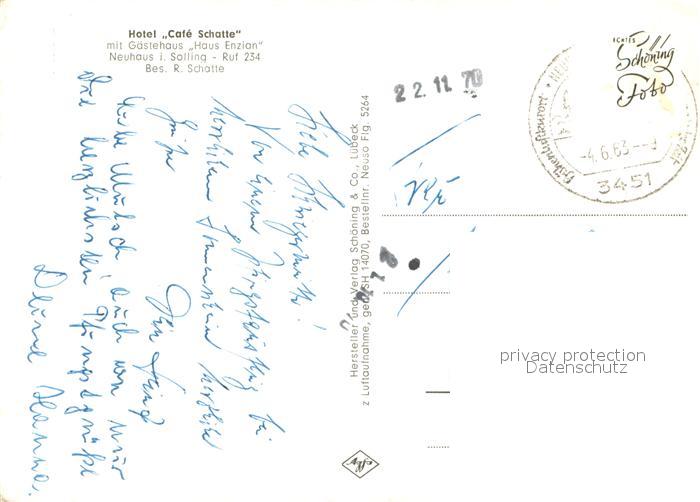 Hotel „Café Schatte"
mit Gästehaus „Haus Enzian"
Neuhaus i. Solling - Ruf 234
Bes. R. Schatte
ECHTES
Schöning
Foto
22.11.70
-4.6.63--9
3451
Liebe
Von einem Pfingstausflug bei
herrlichem Sonnenschein herzliche
Grüße
Dein
Liebe auch von mir
Dir herzlichste Pfingstgrüße
Deine Hanna.
Hersteller und Verlag Schöning & Co., Lübeck
z Luftaufnahme, gen. SH 14070, Bestellnr. Neuso Flg. 5264
Agfa
privacy protection
Datenschutz